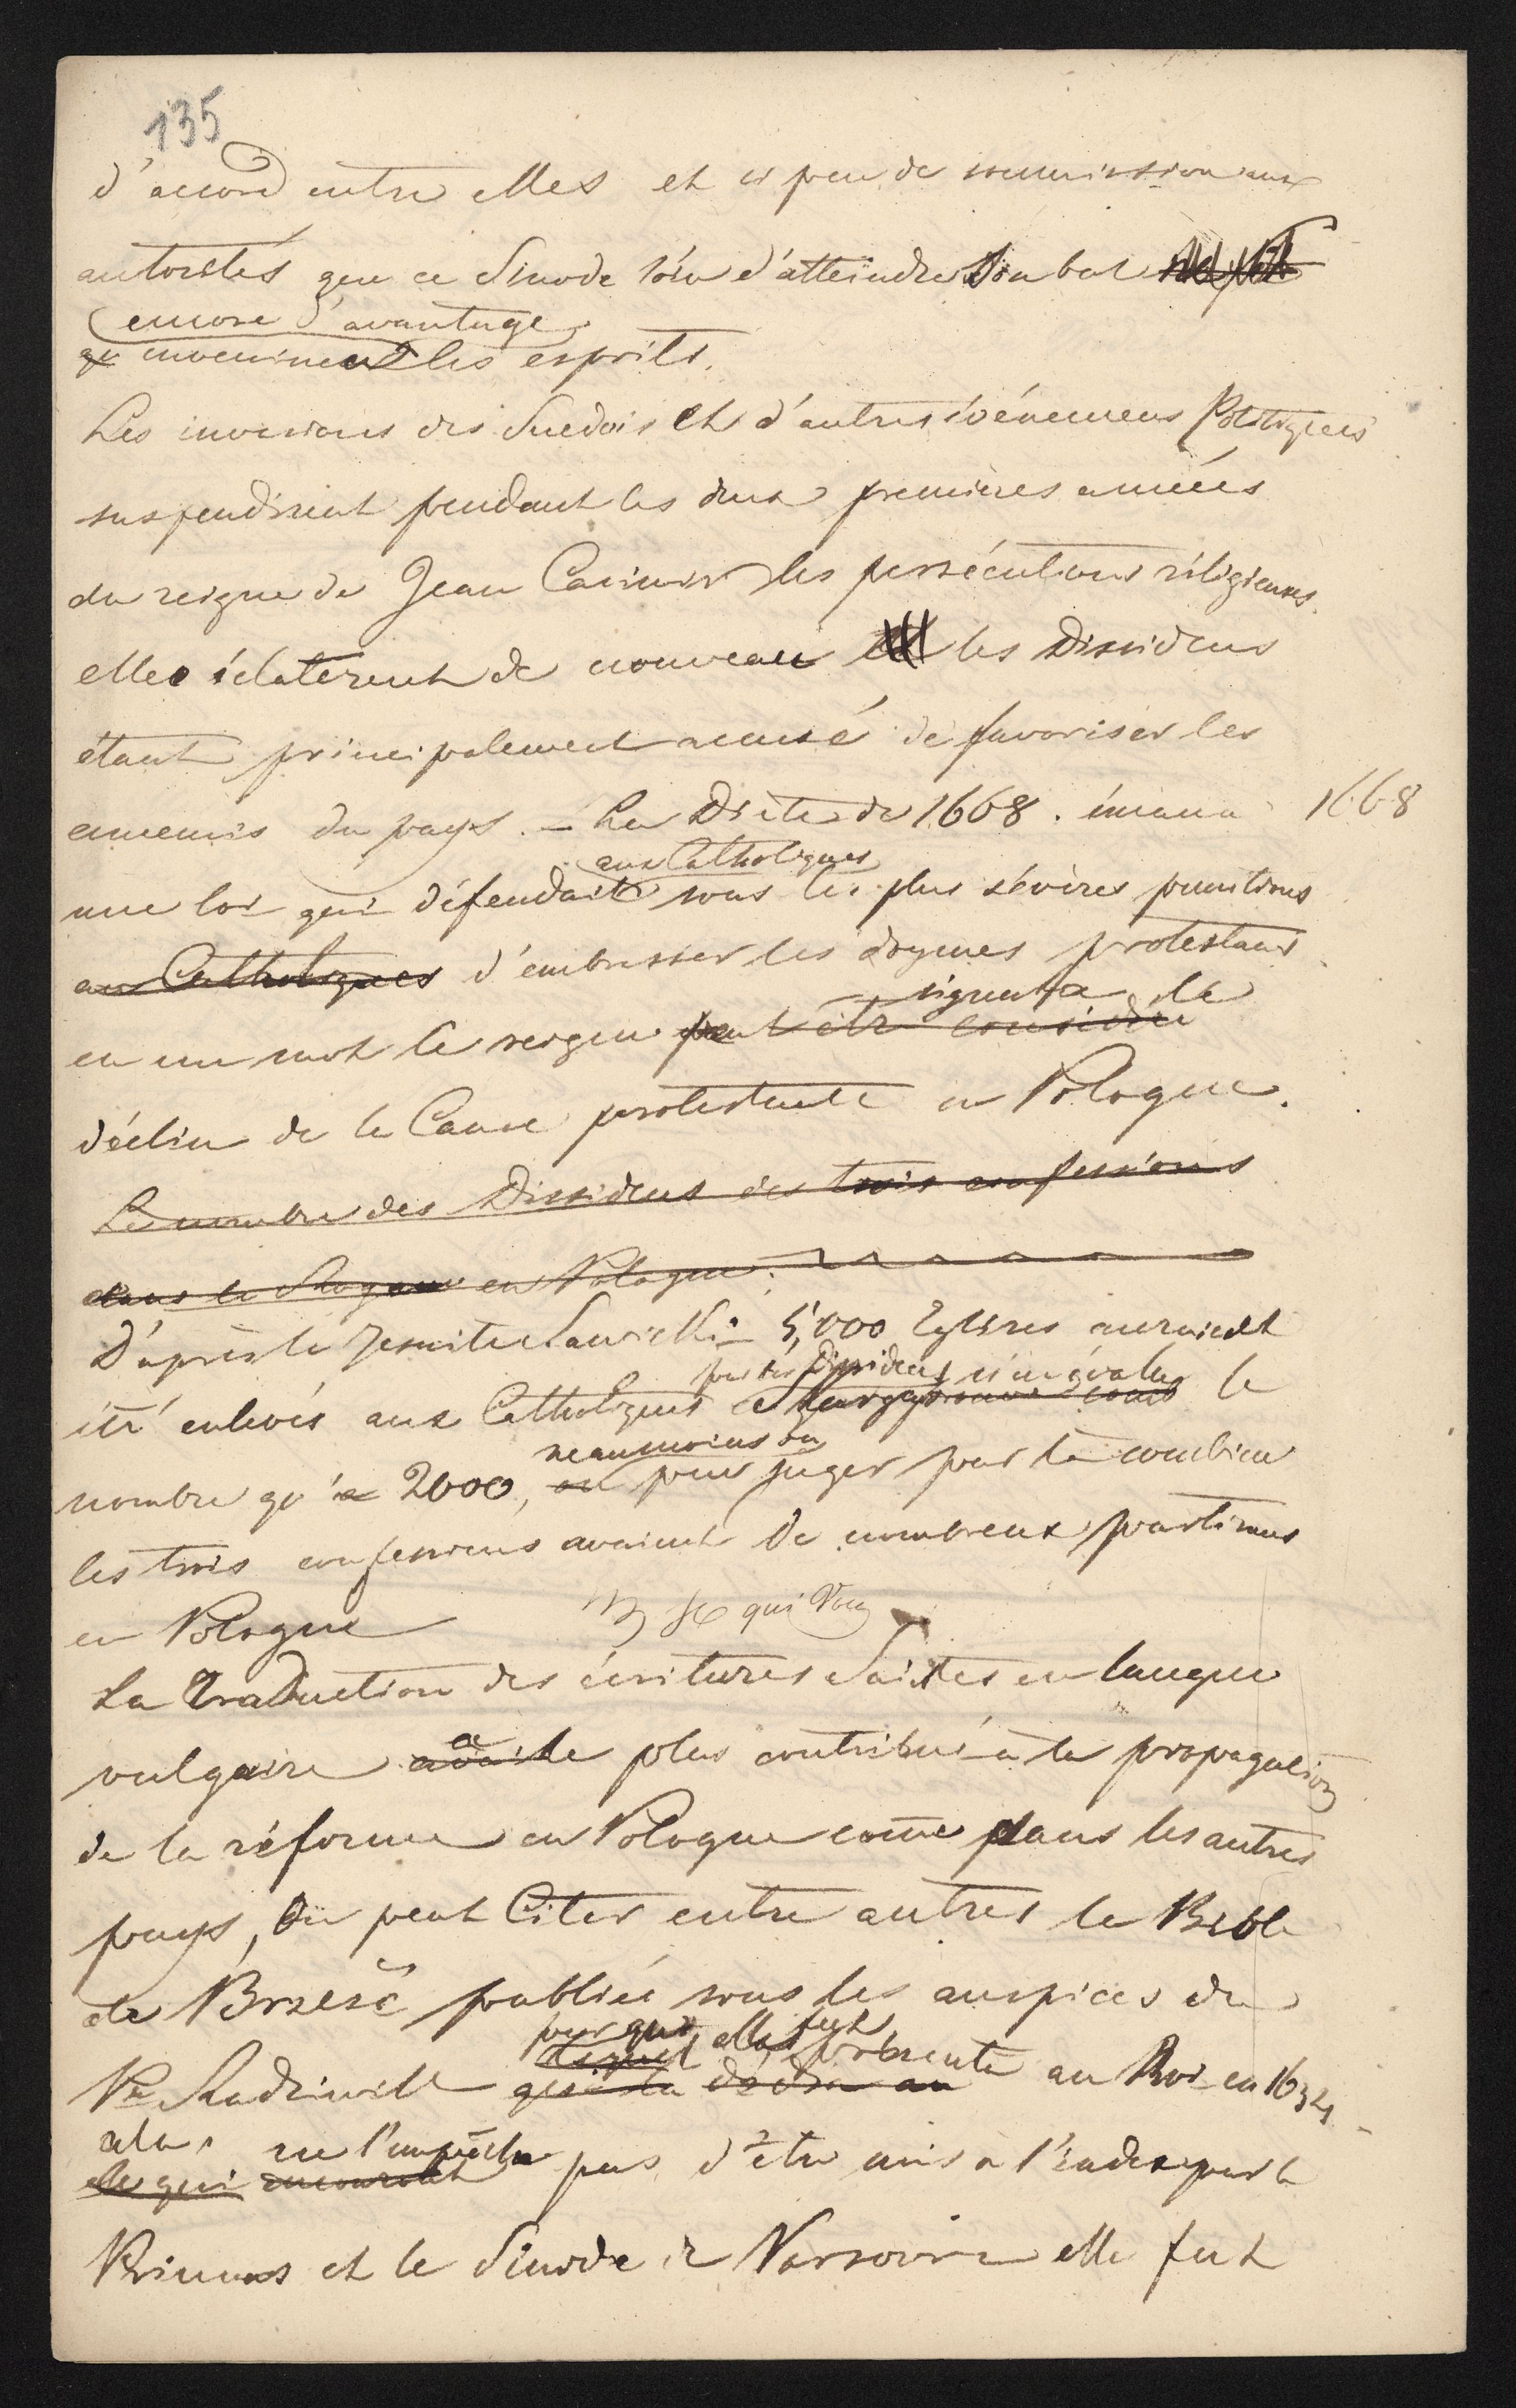 135
d'accord entre elles et si peu de soumission aux
autorités que ce Sinode loin d'atteindre son but
encore d'avantage
envenima les esprits.
Les invasions des Suedois et d'autres événemens Politiques
suspendirent pendant les deux premières années
du reigne de Jean Casimir les persécutions réligieuses.
elles éclatèrent de nouveau les Dissidens
étant principalement accusé de favoriser les
ennemis du pays. – La Diète de 1668. émana 1668
aux Catholiques
une loi qui défendait sous les plus sévères punitions
aux Catholiques d'embrasser les dogmes protestans
signala le
en un mot le reigne peut être considéré
déclin de la Cause protestante en Pologne.
Le nombre des Dissidens des trois confessions
dans le en Pologne.
D'après le Jesuite Sawicki 5,000 Eglises auraient
par les Dissidens n'en évalue
été enlevés aux Catholiques le
neanmoins on
nombre qu'a 2000, on peut juger par là combien
les trois confessions avaient de nombreux partisans
en Pologne
La traduction des écritures Saintes en langue
a
vulgaire avait le plus contribué à la propagation
de la réforme en Pologne come dans les autres
pays, On peut Citer entre autres la Bible
de Brzesć publiée sous les auspices du
par qui elle fut
Pce Radziwill présenté au Roi en 1634
cela ne l'empêcha pas d'être mis à l'index par le
Primas et le Sinode de Varsovie elle fut